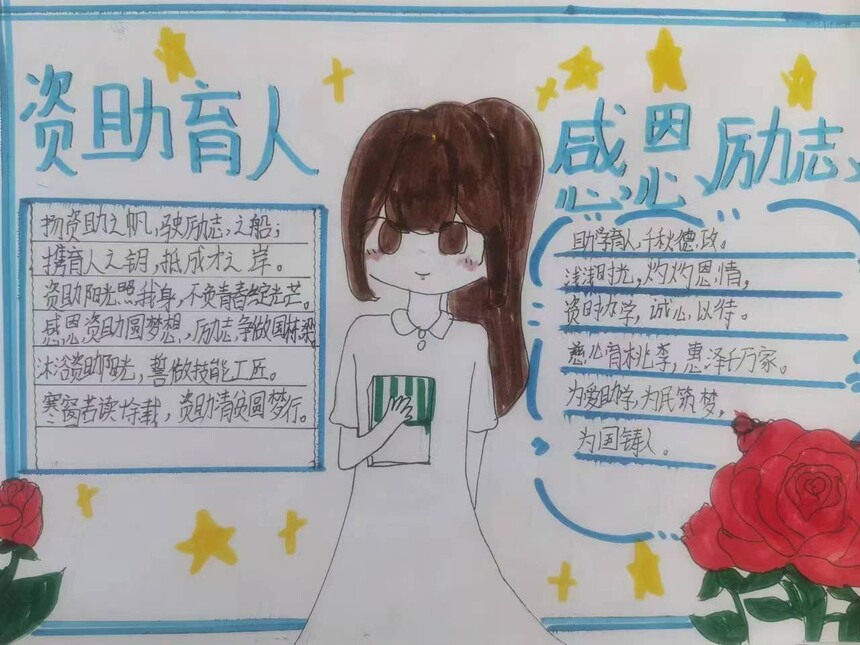 资助育人
扬资助之帆，驶励志之船；
携育人之钥，抵成才之岸。
资助阳光照我身，不负青春绽光芒。
感恩资助圆梦想，励志争做国栋梁
沐浴资助阳光，誓做技能工匠。
寒窗苦读十余载，资助清贫圆梦行。
感恩励志
助学育人，千秋德政。
时光，灼灼恩情，
资时办学，诚心以待。
慈心育桃李，惠泽千万家。
为爱助学，为民筑梦，
为国铸人。